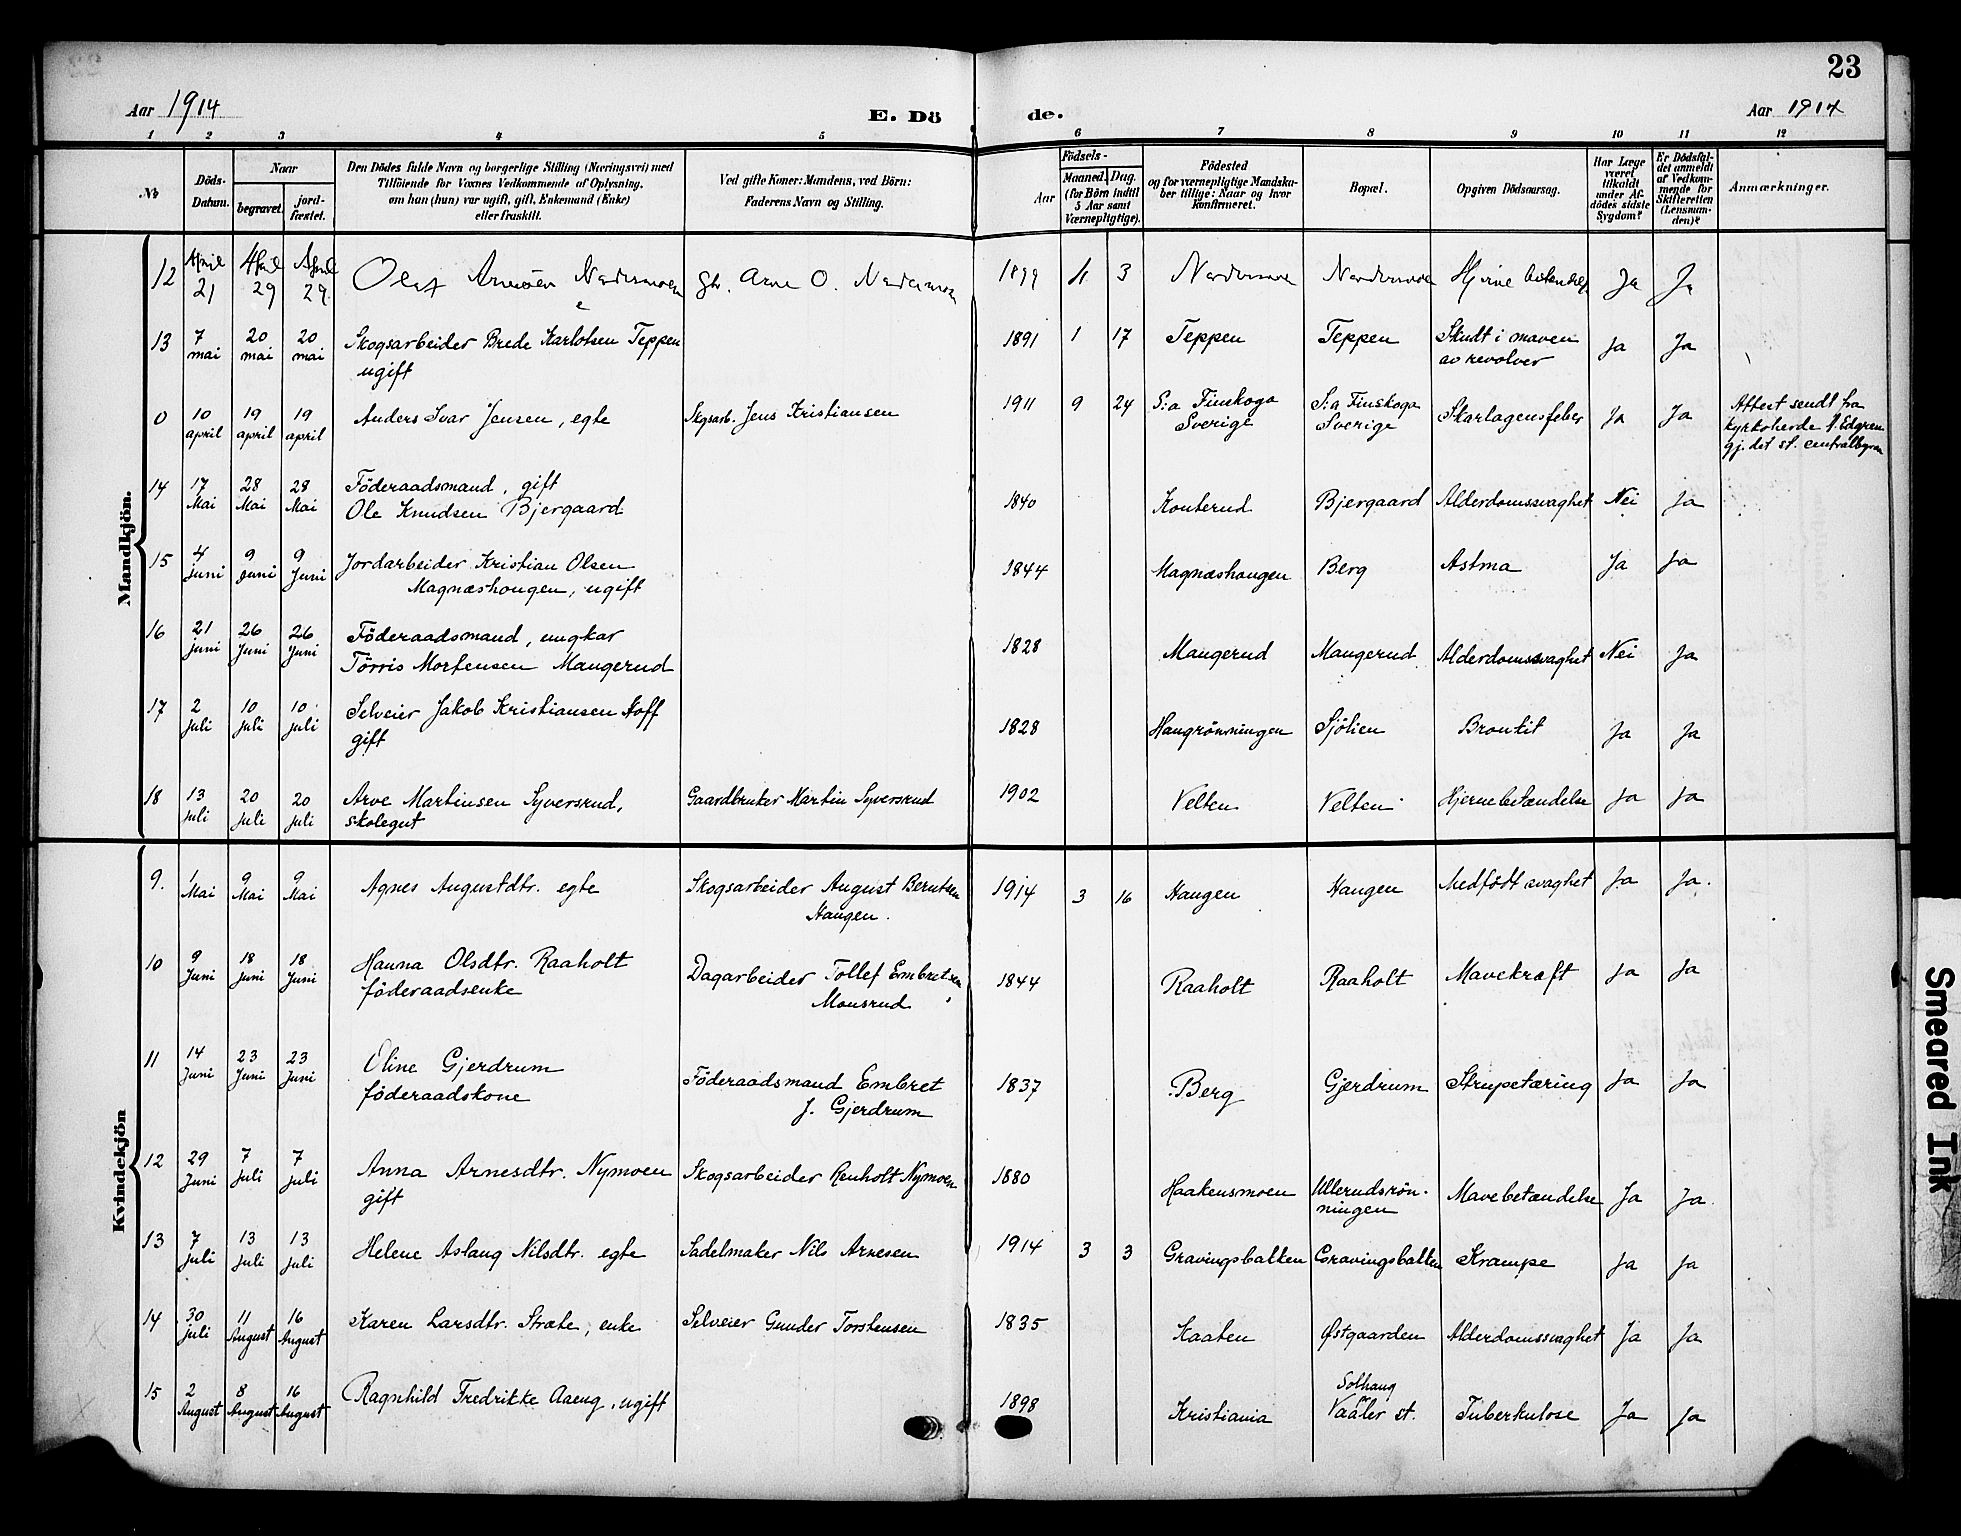 23
Aar 1914
E. Dö
de.
Aar 1914
1 2 3 4 5 6 7 8 9 10 11 12
No
Döds-
Datum.
Naar
begravet.
jord-
fæstet.
Den Dödes fulde Navn og borgerlige Stilling (Næringsvei) med
Tilföiende for Voxnes Vedkommende af Oplysning,
om han (hun) var ugift, gift, Enkemand (Enke)
eller fraskilt.
Ved gifte Koner: Mandens, ved Börn:
Faderens Navn og Stilling.
Födsels-
Aar
Maaned. Dag.
(for Börn indtil
5 Aar samt
Værnepligtige).
Födested
og for værnepligtige Mandska-
ber tillige: Naar og hvor
konfirmeret.
Bopæl.
Opgiven Dödsaarsag.
Har Læge
været
tilkaldt
under Af-
dödes sidste
Sygdom?
Er Dödsfal-
det anmeldt
af Vedkom-
mende for
Skifteretten
(Lensman-
den)?
Anmærkninger.
Mandkjön.
12 April 21 April 29 April 29. Olaf Arnesen Nedermoen gbr. Arne O. Nedermoen 1899 4 3 Nedermoe Nedermoen Hjerne betendelse Ja Ja
13 7 mai 20 mai 20 mai Skogsarbeider Brede Karlotsen Teppen 1891 1 17 Teppen Teppen Skudt i maven Ja Ja
ugift av revolver
0 10 april 19 april 19 april Anders Ivar Jensen, egte Skgsarb. Jens Kristiansen 1911 9 24 S:a Finskoga S:a Finskoga Skarlagensfeber Ja Ja Attest sendt fra
Sverige Sverige kyrkoherde Edgren
gj. det st. centralbyrm
14 17 Mai 28 Mai 28 Mai Föderaadsmand, gift
Ole Knudsen Bjergaard 1840 Konterud Bjergaard Alderdomssvaghet Nei Ja
15 4 juni 9 juni 9 Juni Jordarbeider Kristian Olsen 1844 Magnæshaugen Berg Astma Ja Ja
Magnæshougen, ugift
16 21 juni 26 Juni 26 Juni Föderaadsmand, ungkar
Tørris Mortensen Maugerud 1828 Maugerud Maugerud Alderdomssvaghet Nei Ja
17 2 juli 10 juli 10 juli Selveier Jakob Kristiansen Hoff 1828 Haugrönningen Sjölien Bronkit Ja Ja
gift
18 13 juli 20 juli 20 juli Arve Martinsen Syversrud, Gaardbruker Martin Syversrud 1902 Velten Velten Hjernebetændelse Ja Ja
skolegut
Kvindekjön
9. 1 Mai 9 Mai 9 Mai Agnes Augustdtr. egte Skogsarbeider August Berntsen 1914 3 16 Haugen Haugen Medfödt svaghet Ja Ja.
Haugen.
10 9 Juni 18 juni 18 Juni Hanna Olsdtr. Raaholt Dagarbeider Tollef Embretsen 1844 Raaholt Raaholt Mavekræft Ja Ja
föderaadsenke Monsrud
11 14 Juni 23 Juni 23 Juni Oline Gjerdrum Föderaadsmand Embret 1837 Berg Gjerdrum Strupetæring Ja Ja
föderaadskone J. Gjerdrum
12 29 Juni 7 juli 7 juli Anna Arnesdtr. Nymoen Skogsarbeider Renholt Nymoen 1880 Haakensmoen Ullerudsrön- Mavebetændelse Ja Ja.
gift ningen
13 7 juli 13 juli 13 juli Helene Aslaug Nilsdtr. egte Sadelmaker Nils Arnesen 1914 3 3 Gravingsbakken Gravingsbakken Krampe Ja Ja
14 30 juli 11 August 16 August Karen Larsdtr. Stræte, enke Selveier Gunder Torstensen 1835 Kaaten Østgaarden Alderdomssvaghet Ja Ja
15 2 August 8 August 16 August Ragnhild Fredrikke Aaeng, ugift 1898 Kristiania Solhaug
Vaaler st. Tuberkulose Ja Ja
Smeared Ink